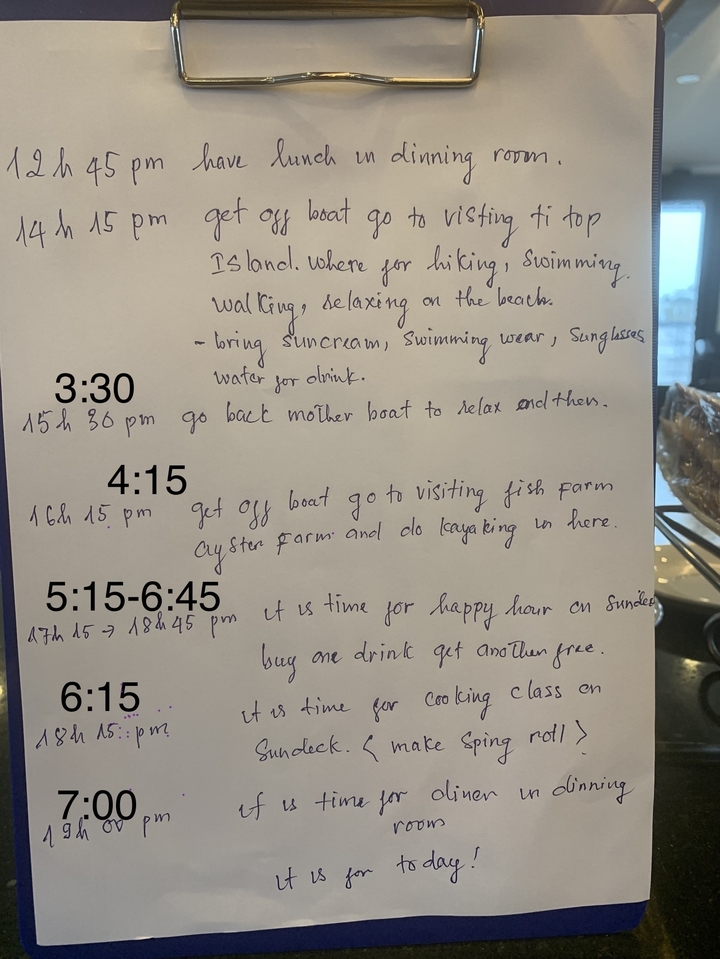 12h 45 pm have lunch in dinning room.
14h 15 pm get off boat go to visting ti top
Island. where for hiking, swimming.
walking, relaxing on the beach.
- bring suncream, swimming wear, sunglasses
water for drink.
3:30
15h 30 pm go back mother boat to relax and then.
4:15
16h 15 pm get off boat go to visiting fish Farm
oyster Farm and do kayaking in here.
5:15-6:45
17h 15 → 18h 45 pm it is time for happy hour on Sundec
buy one drink get another free.
6:15
18h 15 pm it is time for cooking class on
Sundeck. < make sping roll >
7:00
19h 00 pm it is time for diner in dinning
room
it is for today!